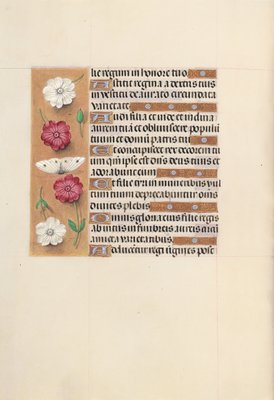 lie regum in honore tuo
Astitit regina a dextris tuis
in vestitu deaurato circundata
varietate
Audi filia et vide et inclina
aurem tuam et obliviscere populu
tuum et domum patris tui
Et concupiscet rex decorem tu
um qm ipse est dns deus tuus et
adorabunt eum
Et filie tirum in muneribus vul
tum tuum deprecabuntur oms
divites plebis
Omnis gloria eius filie regis
ab intus in fimbriis aureis circu
amicta varietatibus
Adducentur regi virgines post